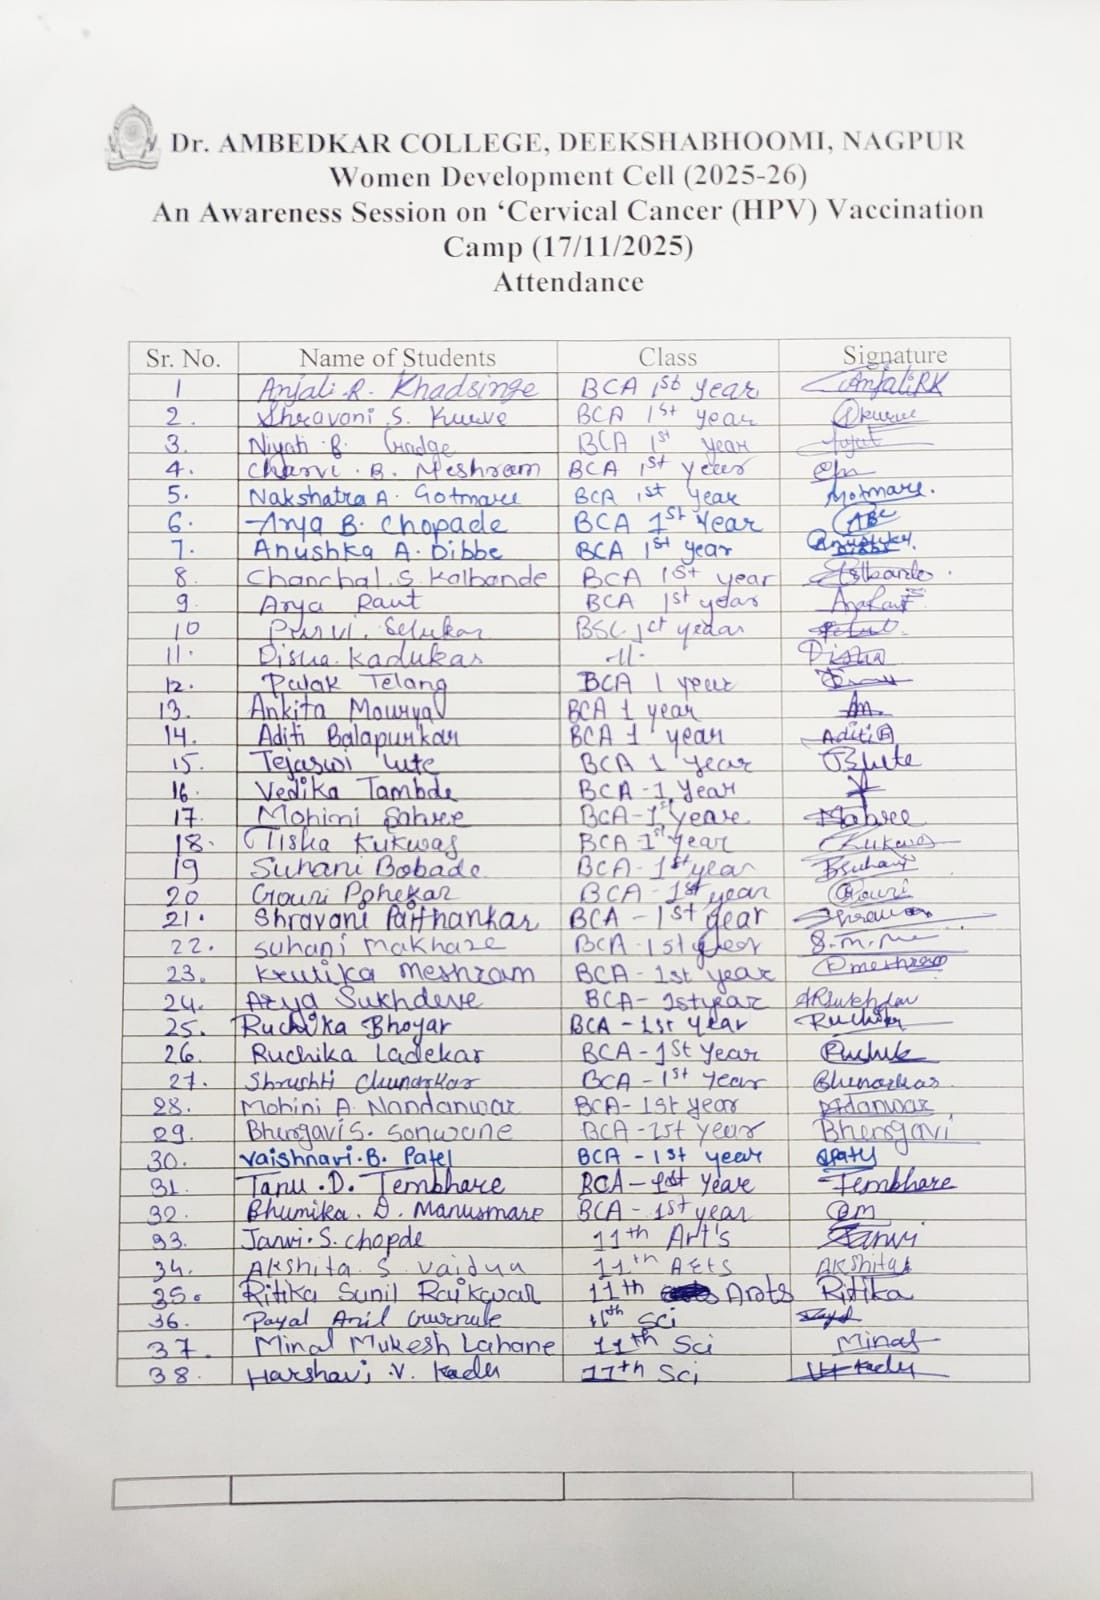 Dr. AMBEDKAR COLLEGE, DEEKSHABHOOMI, NAGPUR
Women Development Cell (2025-26)
An Awareness Session on ‘Cervical Cancer (HPV) Vaccination
Camp (17/11/2025)
Attendance
Sr. No. Name of Students Class Signature
1 Anjali R. Khadsinge BCA 1st Year AnjaliRK
2. Shravani S. Kurve BCA 1st year
3. Niyati B. BCA 1st Year
4. Charvi B. Meshram BCA 1st year
5. Nakshatra A. Gotmare BCA 1st Year
6. Arya B. Chopade BCA 1st Year ABC
7. Anushka A. Dibbe BCA 1st year
8. Chanchal S. Kalbande BCA 1st year
9. Arya Raut BCA 1st year
10 Purvi. Selukar BSC 1st year
11. Disha Kadukar -11- Disha
12. Palak Telang BCA 1 year
13. Ankita Mourya BCA 1 year
14. Aditi Balapurkar BCA 1 year Aditi B
15. Tejaswi BCA 1 Year
16 Vedika Tambde BCA -1 Year
17. Mohini BCA-1st year
18. Tisha BCA 1st year
19 Suhani Bobade BCA - 1st year Bsuhani
20 Gouri BCA - 1st year Gouri
21. Shravani BCA - 1st year
22. suhani makhare BCA 1st year S.m.
23. Krutika Meshram BCA - 1st year
24. Arya Sukhdeve BCA - 1st year
25. Ruchika Bhoyar BCA - 1st Year Ruchika
26. Ruchika Ladekar BCA - 1st Year
27. Shrushti BCA - 1st Year
28. Mohini A. Nandanwar BCA- 1st year
29. S. Sonwane BCA -1st year
30. Vaishnavi.B. Patel BCA - 1st year
31. Tanu .D. Tembhare BCA - 1st Year Tembhare
32. Bhumika. D. Manusmare BCA - 1st year
33. Janvi. S. chopde 11th Art's
34. Akshita S vaidya 11th Arts Akshita
35. Ritika Sunil Raikwar 11th Arots Ritika
36. Payal Anil 11th Sci
37. Minal Mukesh Lahane 11th Sci Minal
38. Harshavi .V. Kadu 11th Sci